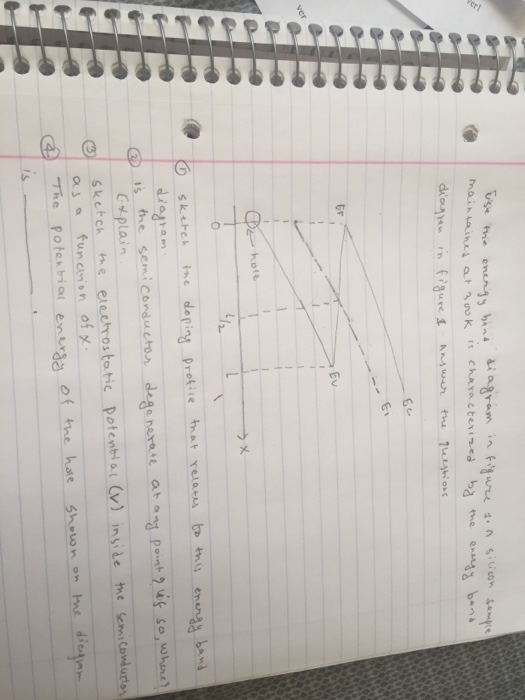 Use the energy band diagram in figure 1. A silicon sample
maintained at 300K is characterized by the energy band
diagram in figure 1. Answer the questions
Ec
Ei
EF
EV
hole
0
L/2
L
X
① sketch the doping profile that relates to this energy band
diagram.
② is the semiconductor degenerate at any point? if so, where?
Explain.
③ sketch the electrostatic potential (V) inside the semiconductor
as a function of x.
④ The potential energy of the hole shown on the diagram
is ______.
ver
ver